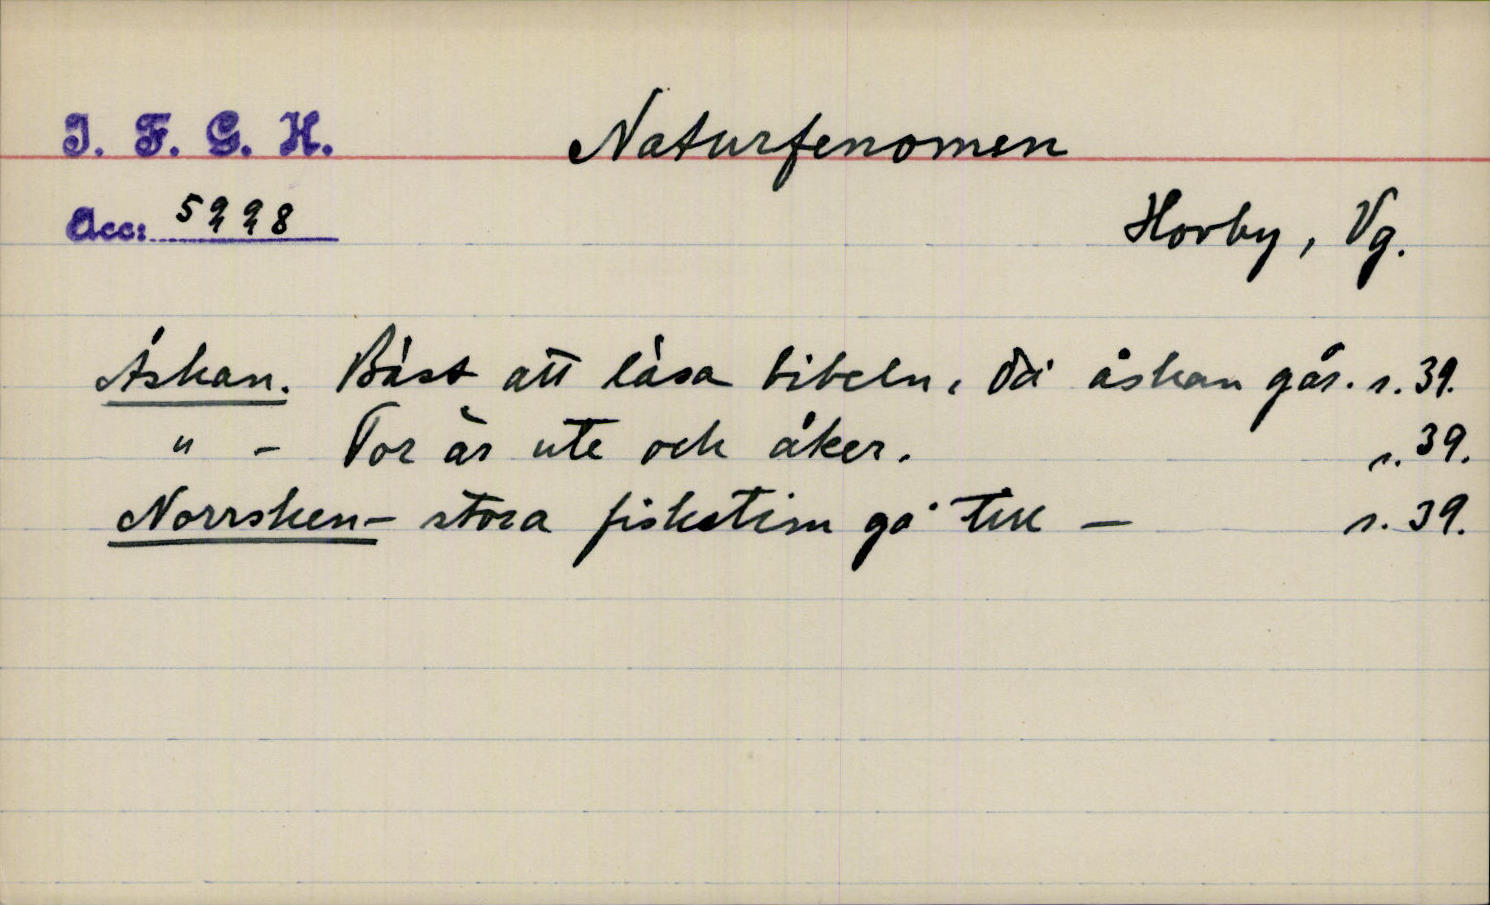 I. F. G. H.
Naturfenomen
Acc: 5998
Horby, Vg.
Åskan. Bäst att läsa bibeln, då åskan går. s. 39.
" - Tor är ute och åker. s. 39.
Norrsken - stora fiskstim gå till — s. 39.